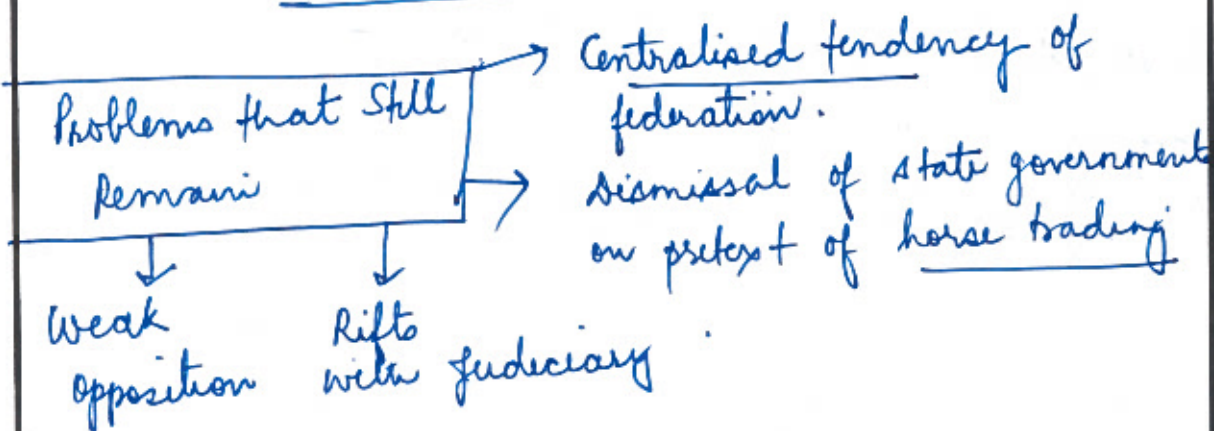 Problems that Still
Remain
Centralised tendency of
federation.
Dismissal of state governments
on pretext of horse trading
Weak
opposition
Rifts
with Judiciary